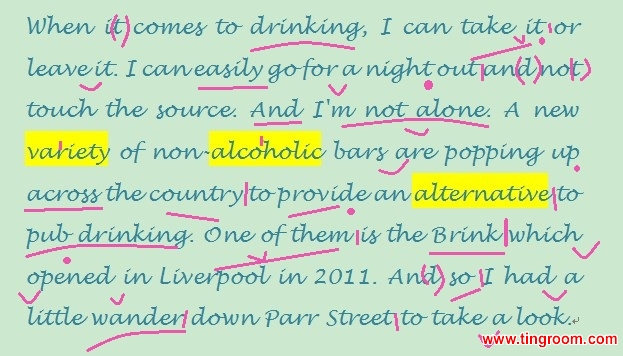 When it comes to drinking, I can take it or
leave it. I can easily go for a night out and not
touch the source. And I'm not alone. A new
variety of non-alcoholic bars are popping up
across the country to provide an alternative to
pub drinking. One of them is the Brink which
opened in Liverpool in 2011. And so I had a
little wander down Parr Street to take a look.
www.tingroom.com